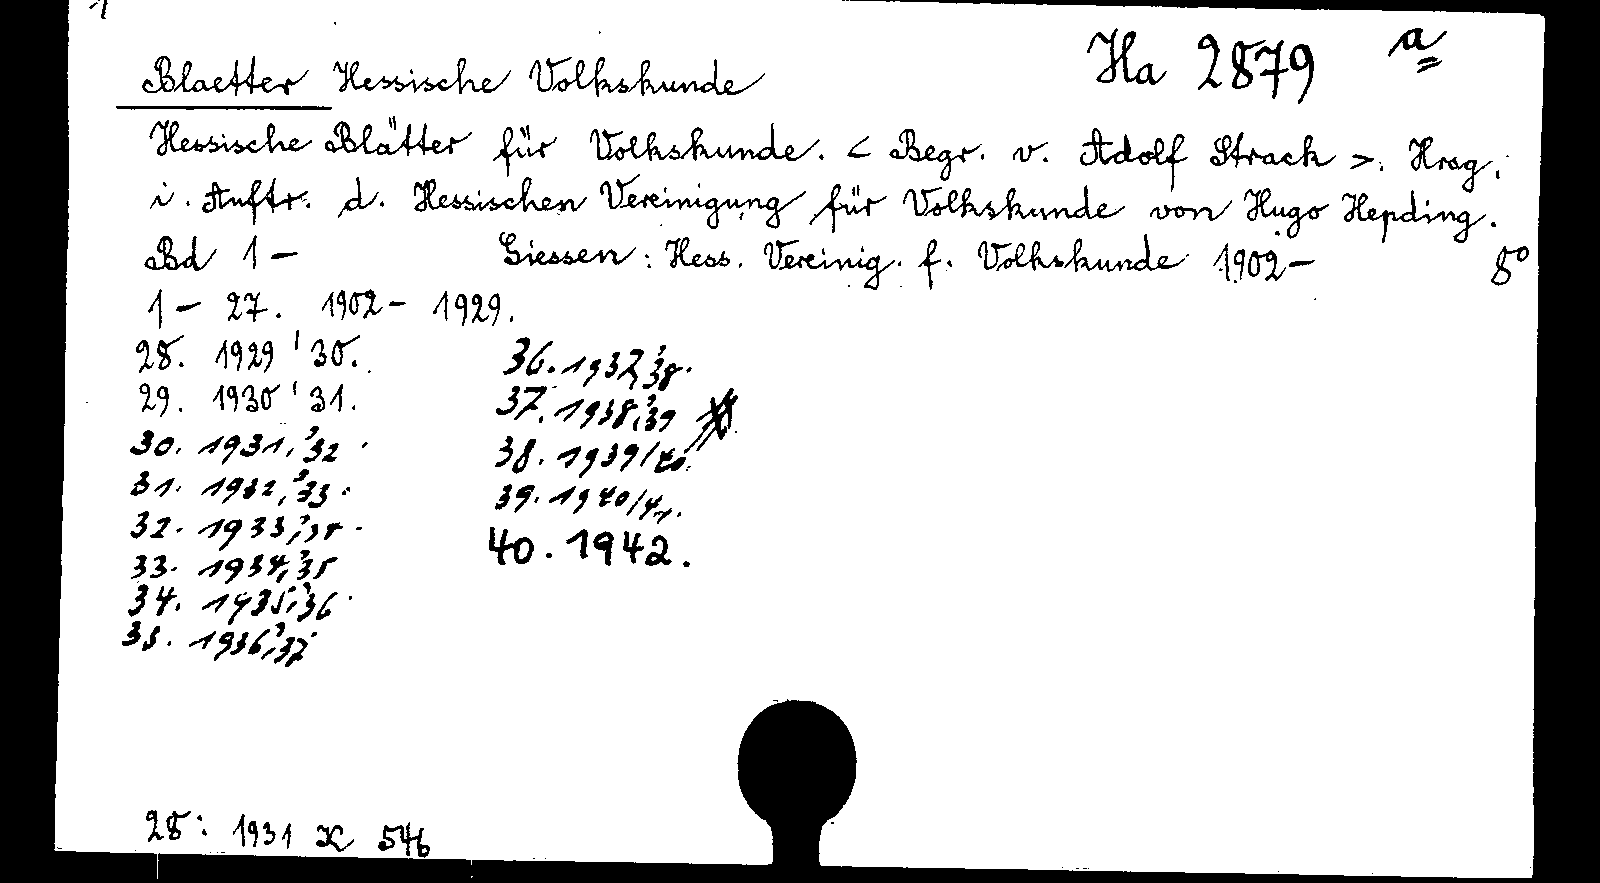 1
Ha 2879 a
Blaetter Hessische Volkskunde
Hessische Blätter für Volkskunde. < Begr. v. Adolf Strack >. Hrsg.
i. Auftr. d. Hessischen Vereinigung für Volkskunde von Hugo Hepding.
Bd 1 - Giessen: Hess. Vereinig. f. Volkskunde 1902- 8°
1 - 27. 1902 - 1929.
28. 1929 '30.
29. 1930 '31.
30. 1931, '32.
31. 1932, '33.
32. 1933, '34.
33. 1934, '35
34. 1935, '36.
35. 1936, '37
36. 1937, '38.
37. 1938, '39
38. 1939/40.
39. 1940/41.
40. 1942.
28: 1931 K 546